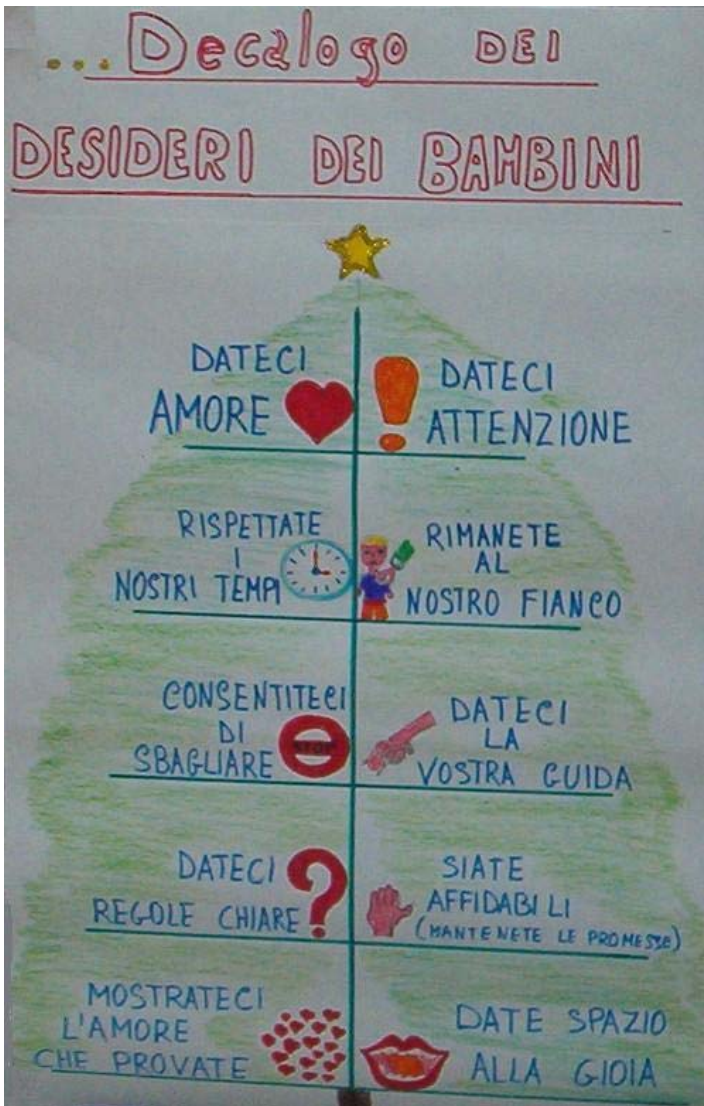 ...Decalogo DEI
DESIDERI DEI BAMBINI
DATECI
AMORE
DATECI
ATTENZIONE
RISPETTATE
I
NOSTRI TEMPI
RIMANETE
AL
NOSTRO FIANCO
CONSENTITECI
DI
SBAGLIARE
STOP
DATECI
LA
VOSTRA GUIDA
DATECI
REGOLE CHIARE
SIATE
AFFIDABILI
(MANTENETE LE PROMESSE)
MOSTRATECI
L'AMORE
CHE PROVATE
DATE SPAZIO
ALLA GIOIA